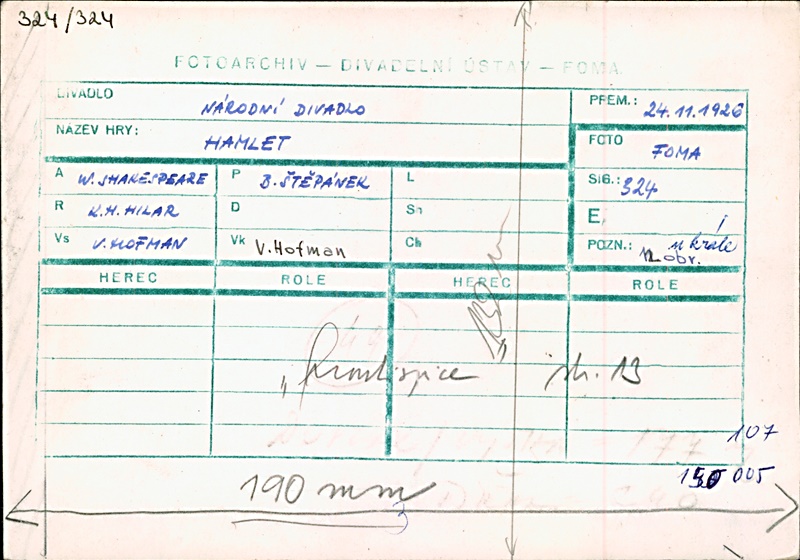 324/324
FOTOARCHIV — DIVADELNÍ ÚSTAV — FOMA
DIVADLO NÁRODNÍ DIVADLO PREM.: 24.11.1926
NÁZEV HRY: HAMLET FOTO FOMA
A W. SHAKESPEARE P B. ŠTĚPÁNEK L SIG.: 324
R K.H. HILAR D Sn E.
Vs V. HOFMAN Vk V. Hofman Ch POZN.: u krále
12. obr.
HEREC ROLE HEREC ROLE
str. 13
107
005
190 mm
3